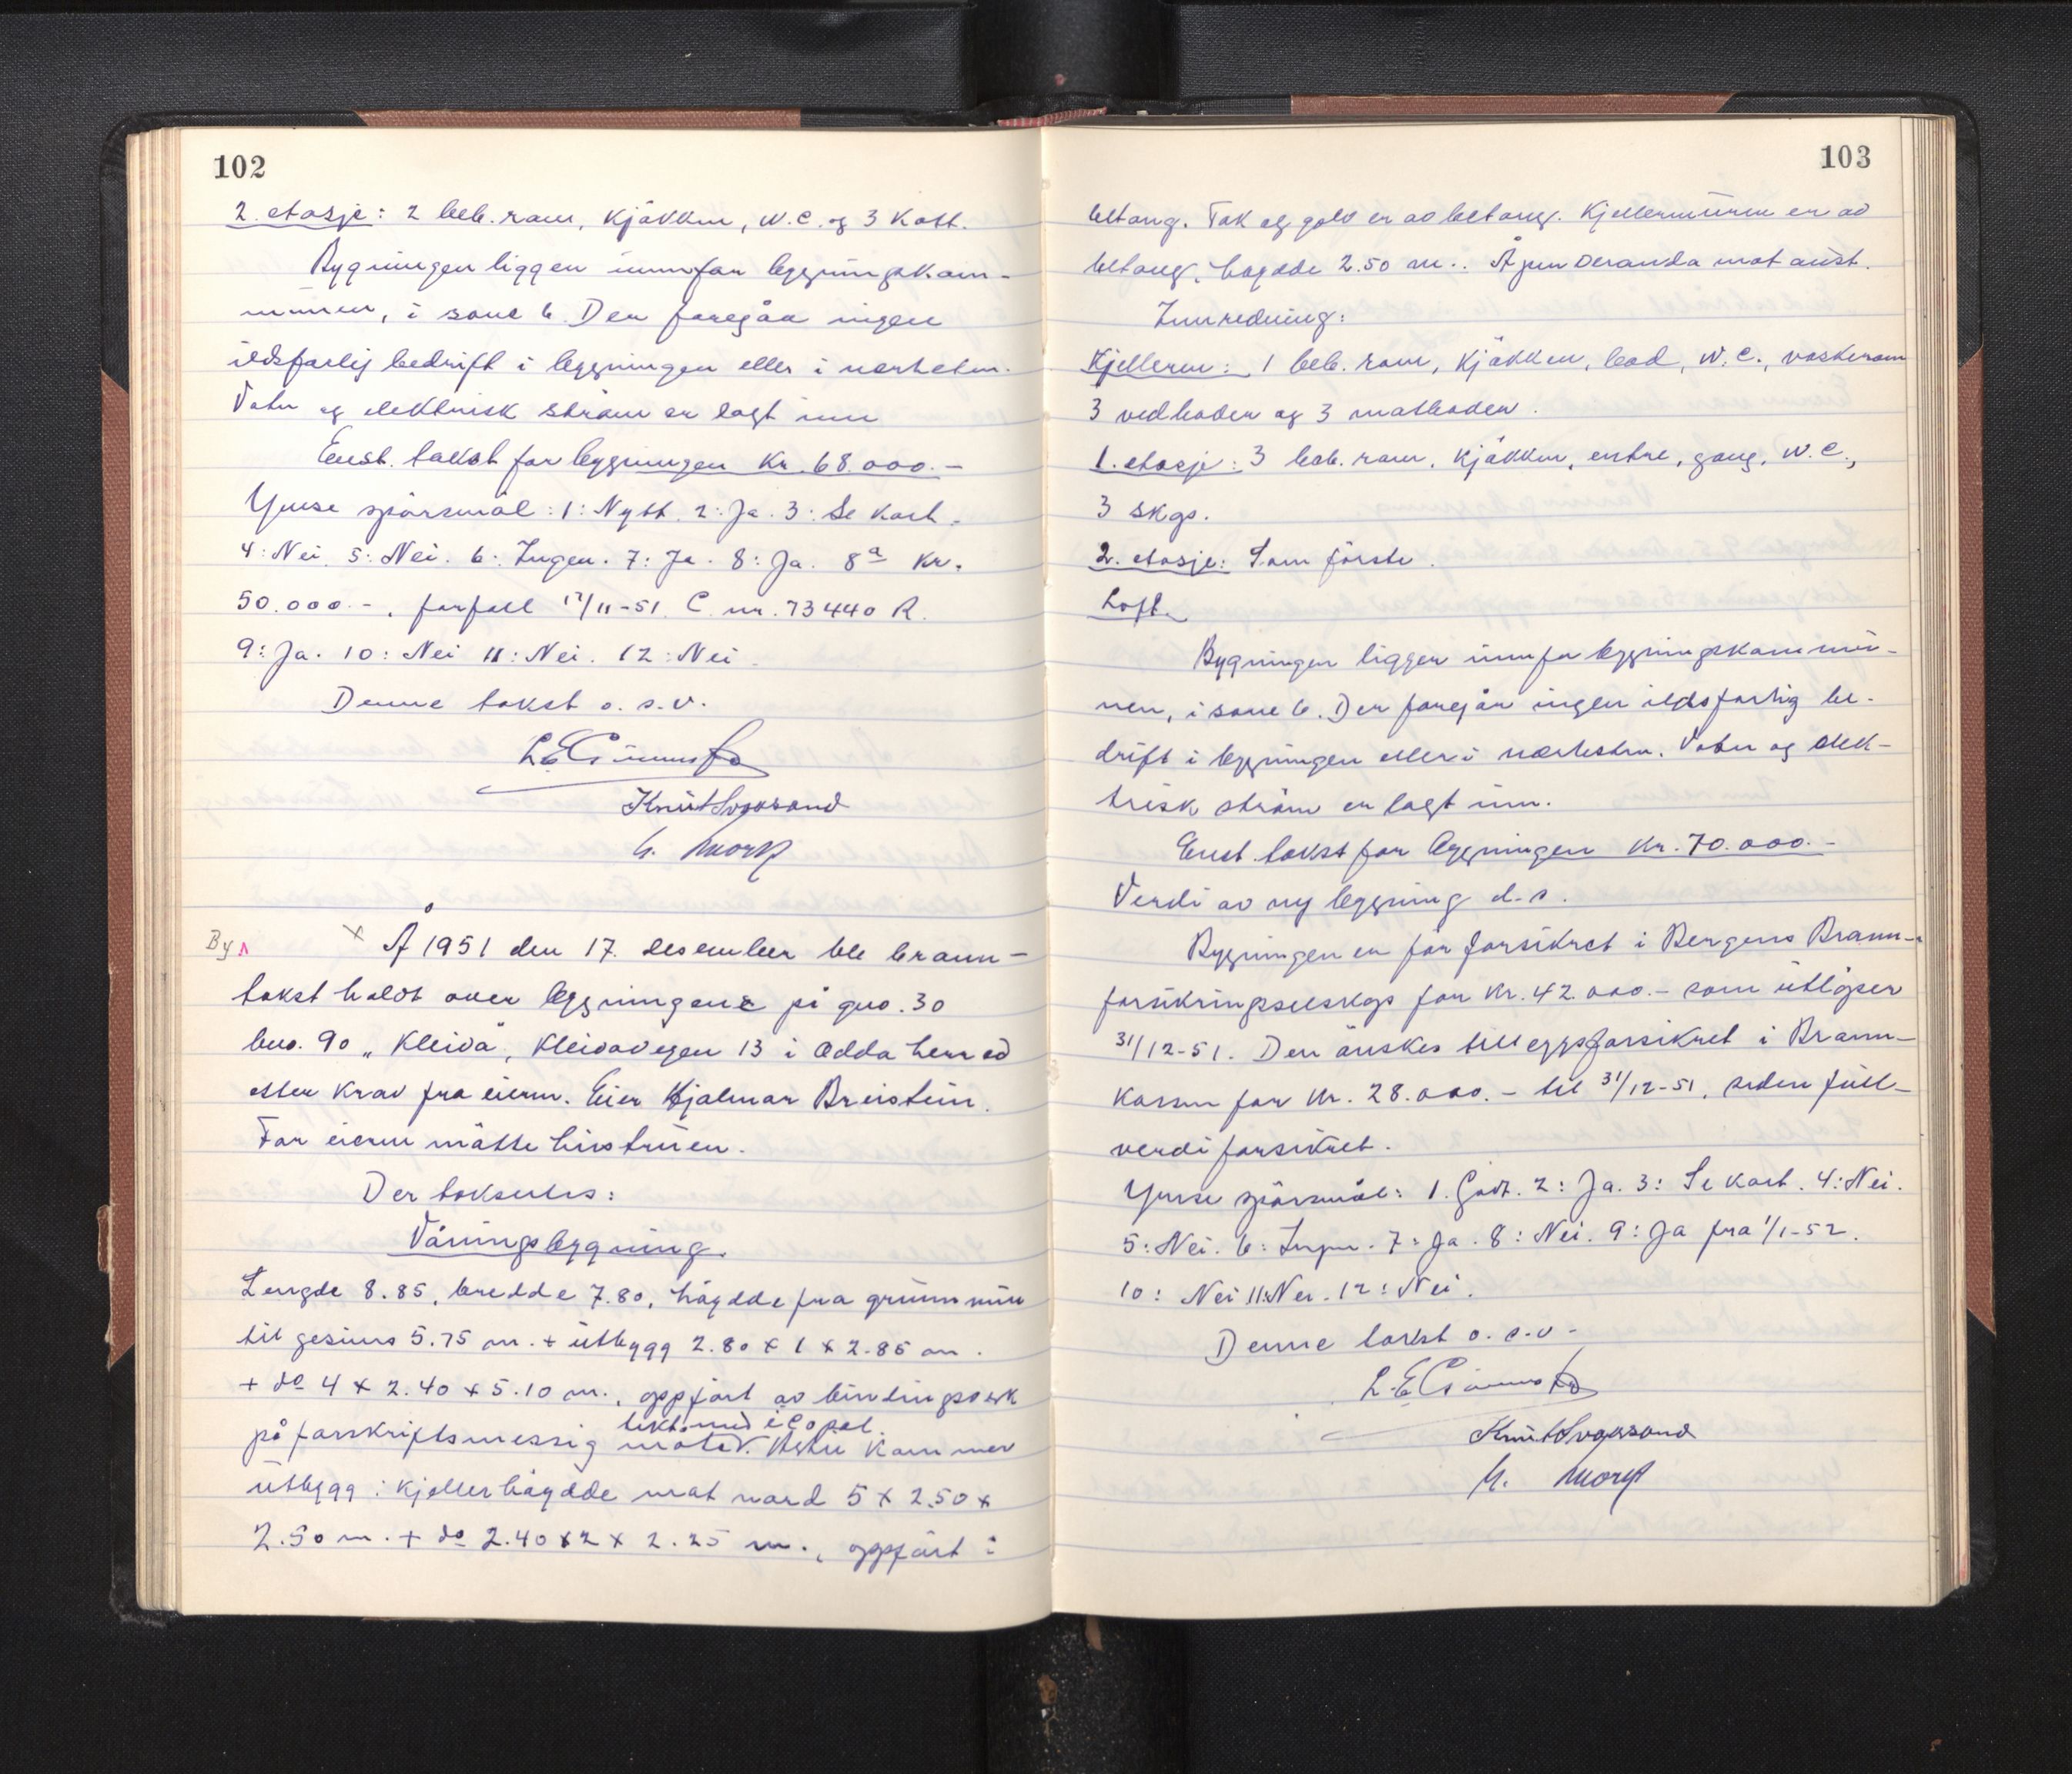 102
2. etasje: 2 beb. rom, kjøkken, W.C. og 3 kott.
Bygningen ligger innafor bygningskom-
munen, i sone 6. Der foregår ingen
ildsfarlig bedrift i bygningen eller i nærheten.
Vatn og elektrisk strøm er lagt inn
Enst. takst for bygningen kr. 68.000.-
Ymse spörsmål: 1: Nytt. 2: Ja. 3: Se kart.
4: Nei. 5: Nei. 6: Ingen. 7: Ja. 8: Ja. 8a kr.
50.000.-, forfall 17/11-51. C. nr. 73440 R.
9: Ja. 10: Nei 11: Nei. 12: Nei.
Denne takst o. s. v.
Knut Svaasand
By
År 1951 den 17. desember ble brann-
takst holdt over bygningene på gno. 30
bno. 90 „Kleivå", Kleivavegen 13 i Odda herred
etter krav fra eieren. Eier Hjalmar Breistein.
For eieren møtte hustruen.
Der takseres:
Våningsbygning.
Lengde 8.85, bredde 7.80, høgdde fra grunnmur
til gesims 5.75 m. + utbygg 2.80 x 1 x 2.85 m.
+ do 4 x 2.40 x 5.10 m., oppført av bindingsverk
tekt med icopal.
på forskriftsmessig måte. Hertil kommer
utbygg i kjellerhøgdde mot nord 5 x 2.50 x
2.50 m. + do 2.40 x 2 x 2.25 m., oppført i
103
betong. Tak og golv er av betong. Kjellermuren er av
betong, høgdde 2.50 m.. Åpen veranda mot aust.
Innredning:
Kjelleren: 1 beb. rom, kjøkken, bad, W.C., vaskerom
3 vedboder og 3 matboder.
1. etasje: 3 beb. rom, kjøkken, entre, gang, W.C.,
3 skap.
2. etasje: Som første.
Loft.
Bygningen ligger innafor bygningskommu-
nen, i sone 6. Der foregår ingen ildsfarlig be-
drift i bygningen eller i nærheten. Vatn og elek-
trisk strøm er lagt inn.
Enst. takst for bygningen kr. 70.000.-
Verdi av ny bygning d. s.
Bygningen er før forsikret i Bergens Brann-
forsikringsselskap for kr. 42.000.- som utløper
31/12-51. Den ønskes tilleggsforsikret i Brann-
kassen for kr. 28.000.- til 31/12-51, siden full-
verdiforsikret.
Ymse spørsmål: 1. Godt. 2: Ja. 3: Se kart. 4: Nei.
5: Nei. 6: Ingen. 7: Ja. 8: Nei. 9: Ja fra 1/1-52.
10: Nei 11: Nei. 12: Nei.
Denne takst o. s. v.
Knut Svaasand